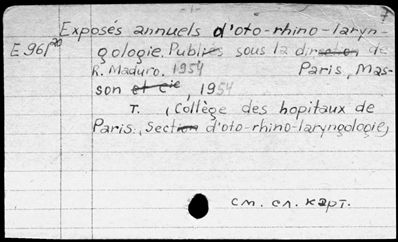 7
Exposés annuels d'oto-rhino-laryn-
E 961/20 gologie. Publiés sous la direction de
R. Maduro. 1954 Paris, Mas-
son et Cie, 1954
T. , Collège des hopitaux de
Paris, Section d'oto-rhino-laryngologie,
см. сл. карт.